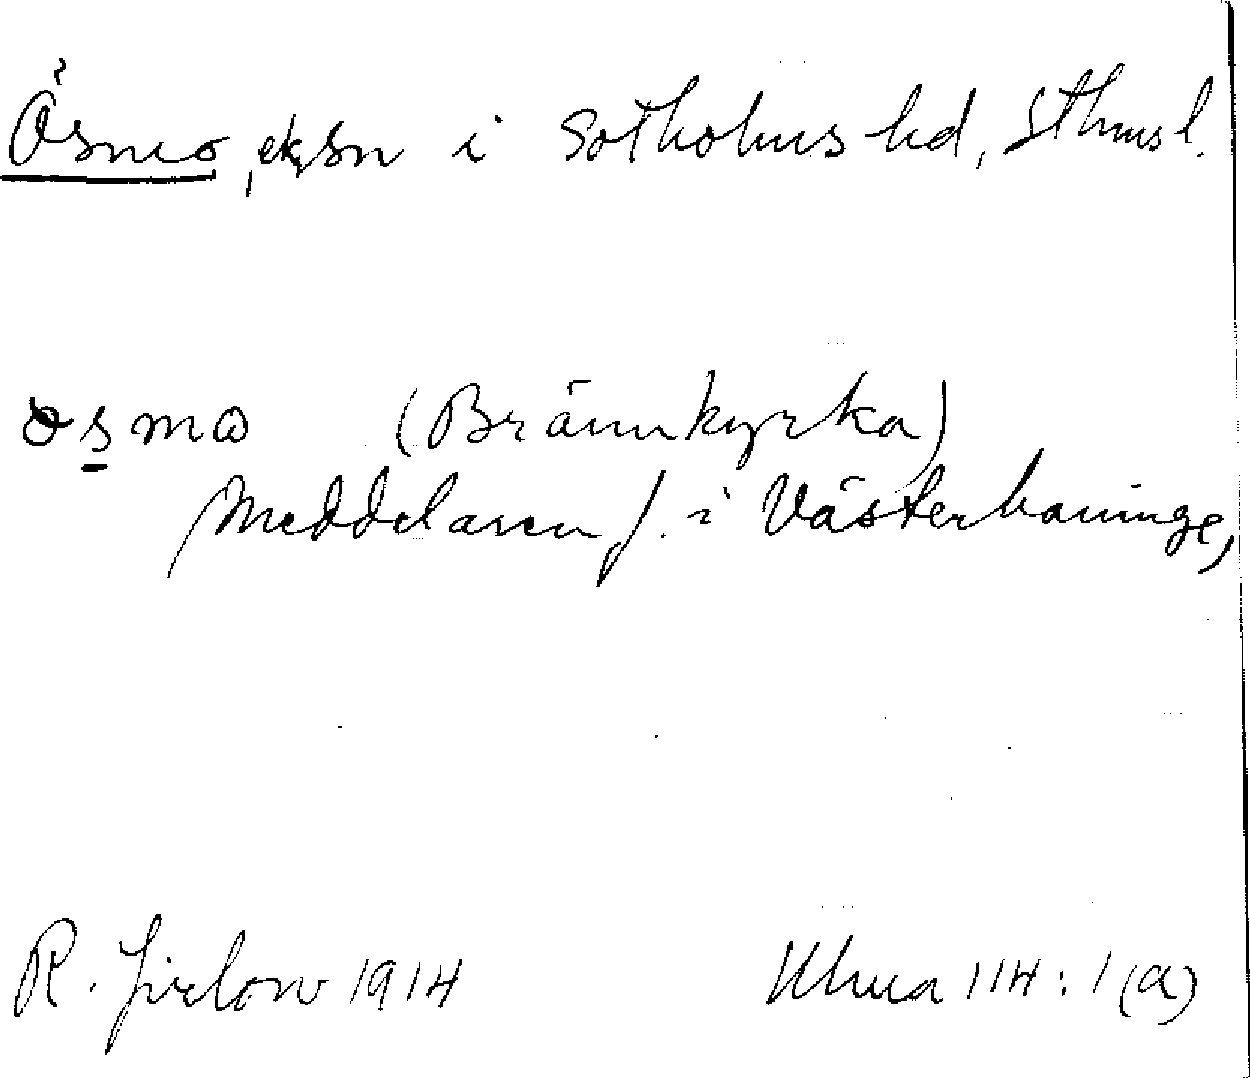 Ösmo, eksn i Sotholms hd, Sthms l.
(Brännkyrka)
Meddelaren f. i Västerhaninge,
R. Jirlow 1914 Uhma 114:1 (a)